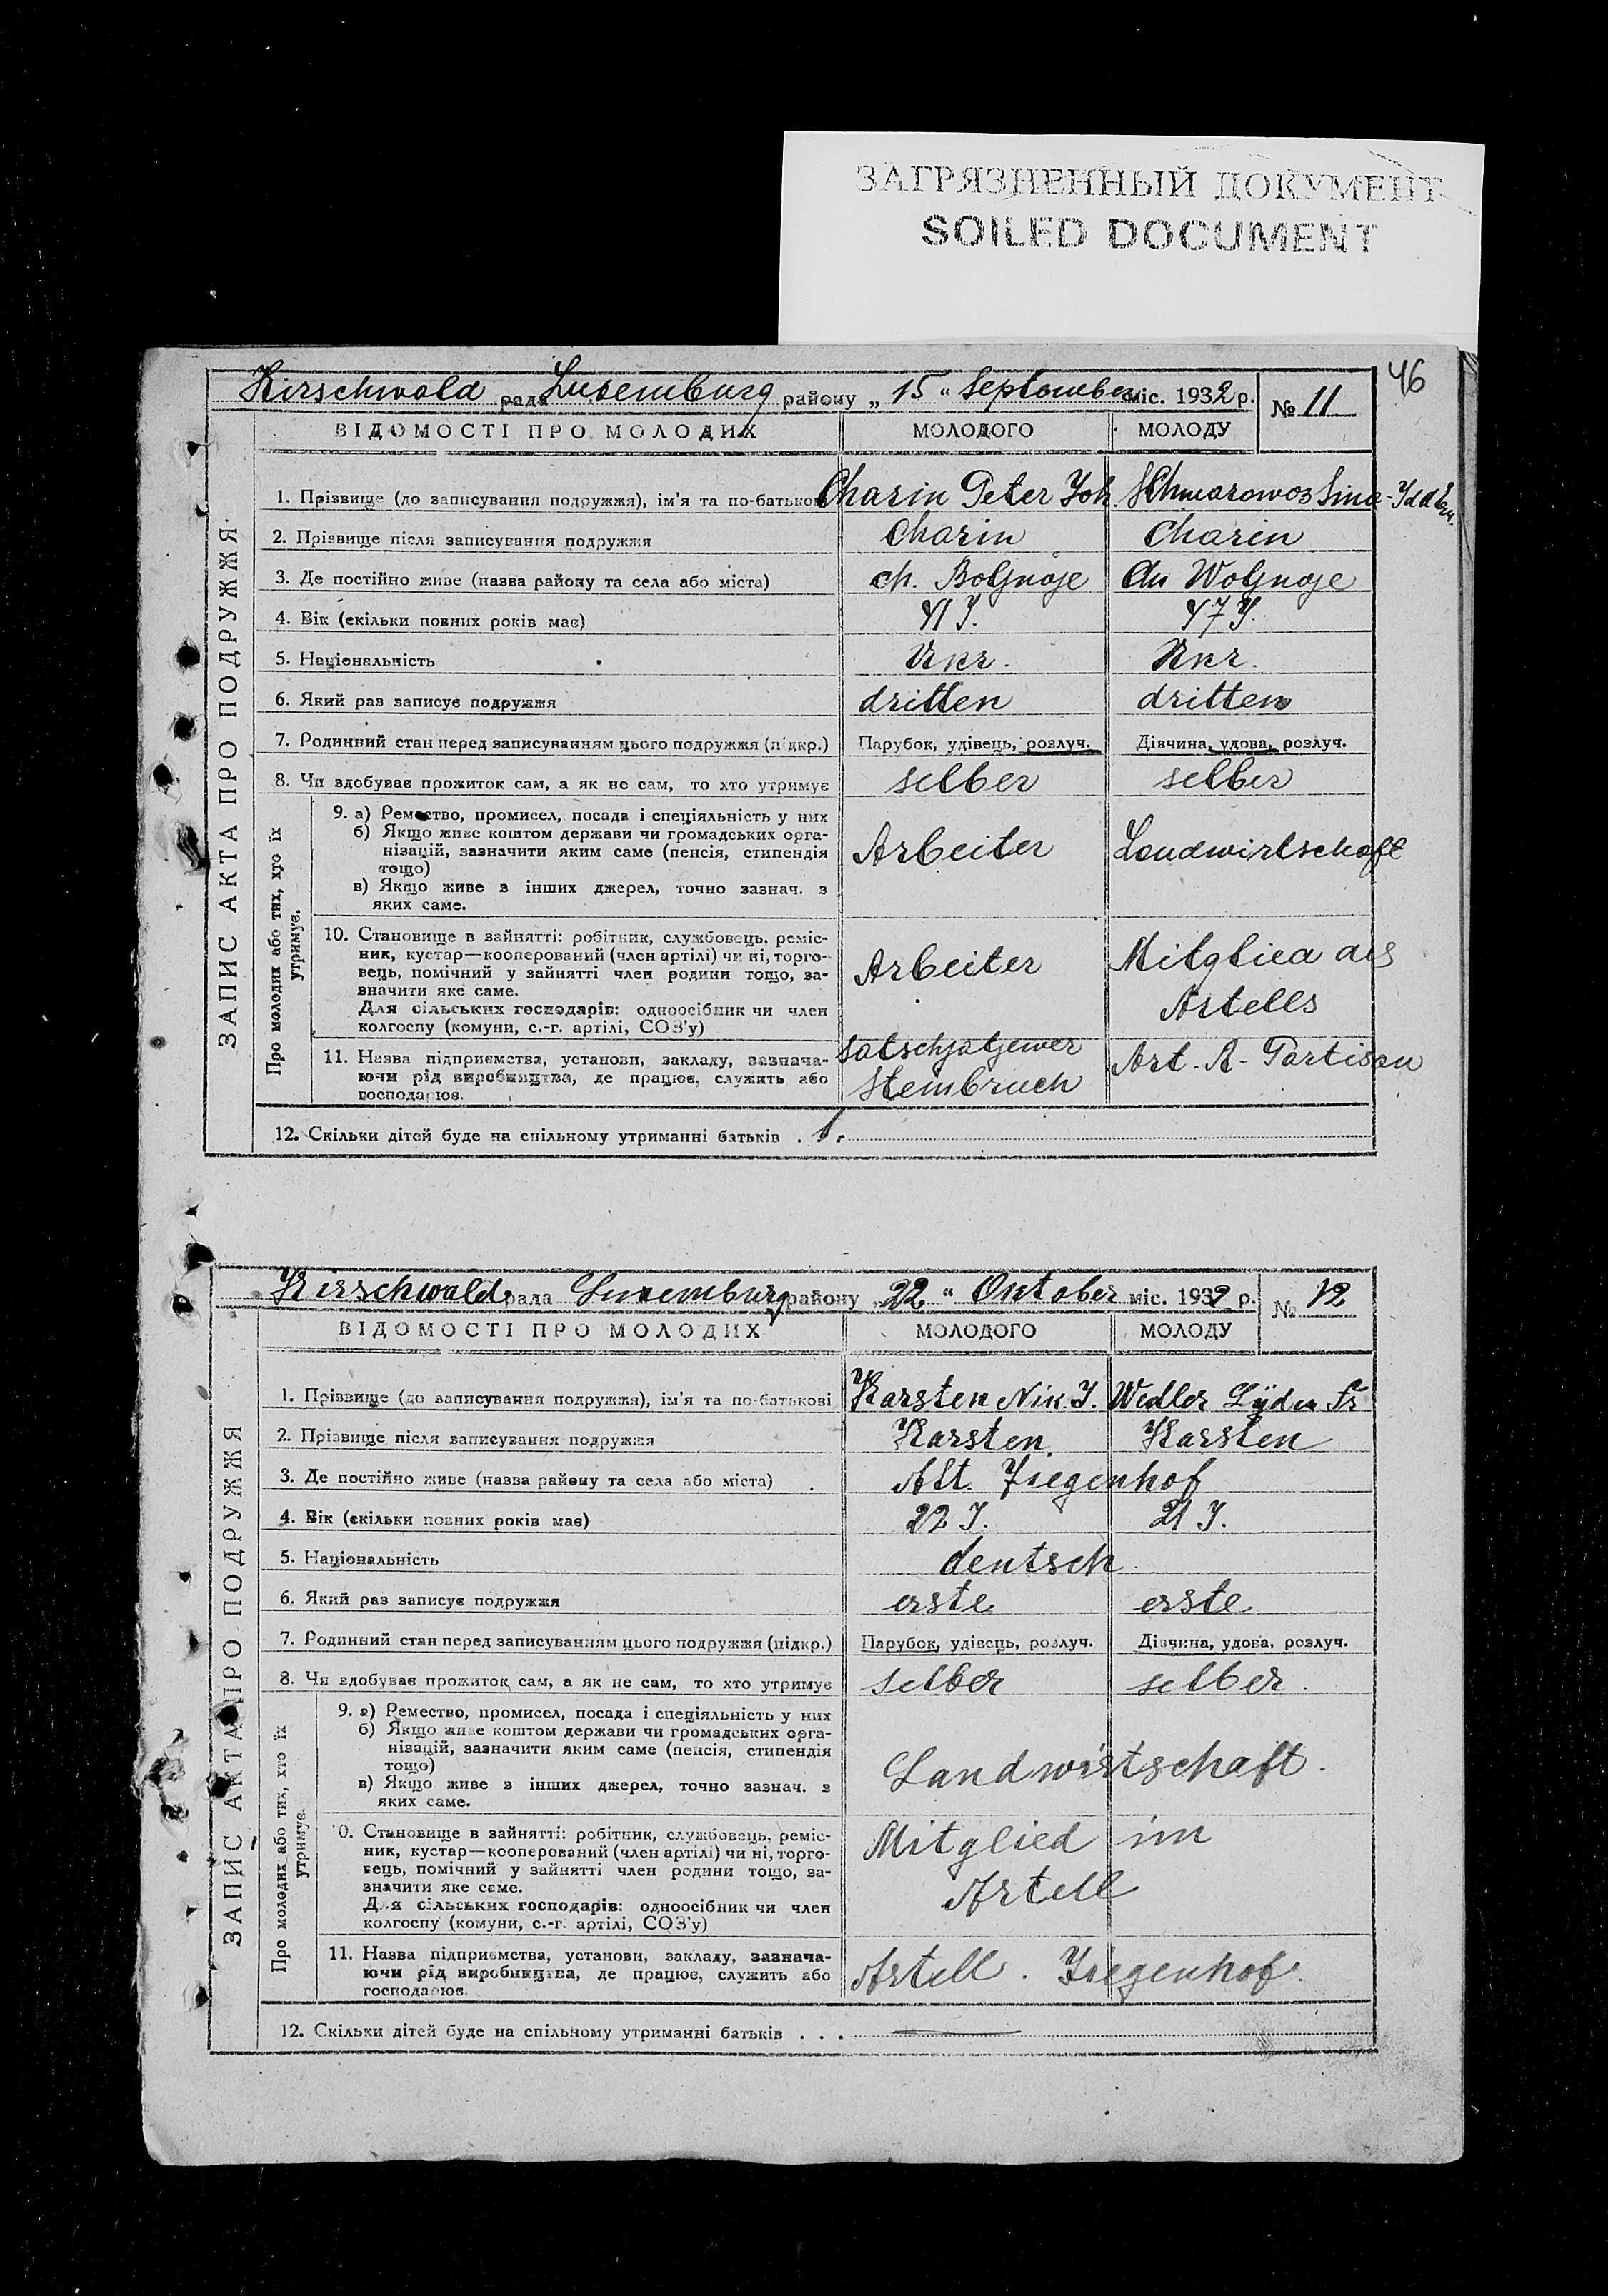 ЗАГРЯЗНЕННЫЙ ДОКУМЕНТ
SOILED DOCUMENT
46
Kirschwald рада Luxemburg району „ 15 “ September міс. 1932 р. № 11
ЗАПИС АКТА ПРО ПОДРУЖЖЯ
ВІДОМОСТІ ПРО МОЛОДИХ МОЛОДОГО МОЛОДУ
1. Прізвище (до записування подружжя), ім'я та по-батькові Charin Peter Joh.
2. Прізвище після записування подружжя Charin Charin
3. Де постійно живе (назва району та села або міста) ch. Woljnoje
4. Вік (скільки повних років має) 41 J. 47 J.
5. Національність Ukr. Ukr.
6. Який раз записує подружжя dritten dritten
7. Родинний стан перед записуванням цього подружжя (підкр.) Парубок, удівець, розлуч. Дівчина, удова, розлуч.
8. Чи здобуває прожиток сам, а як не сам, то хто утримує selber selber
Про молодих або тих, хто їх утримує.
9. а) Ремество, промисел, посада і спеціяльність у них
б) Якщо живе коштом держави чи громадських орга-
нізацій, зазначити яким саме (пенсія, стипендія Arbeiter Landwirtschaft
тощо)
в) Якщо живе з інших джерел, точно зазнач. з
яких саме.
10. Становище в зайнятті: робітник, службовець, реміс-
ник, кустар—кооперований (член артілі) чи ні, торго- Arbeiter Mitglied des
вець, помічний у зайнятті член родини тощо, за-
значити яке саме. Artells
Для сільських господарів: одноосібник чи член
колгоспу (комуни, с.-г. артілі, СОЗ'у)
11. Назва підприємства, установи, закладу, зазнача- Art. R- Partisan
ючи рід виробництва, де працює, служить або Steinbruch
господарює.
12. Скільки дітей буде на спільному утриманні батьків . 1.
Kirschwald рада Luxemburg району „ 22 “ Oktober міс. 1932 р. № 12
ЗАПИС АКТА ПРО ПОДРУЖЖЯ
ВІДОМОСТІ ПРО МОЛОДИХ МОЛОДОГО МОЛОДУ
1. Прізвище (до записування подружжя), ім'я та по-батькові Karsten Nik. J. Wedler Lÿdia Fr
2. Прізвище після записування подружжя Karsten. Karsten
3. Де постійно живе (назва району та села або міста) Alt. Ziegenhof
4. Вік (скільки повних років має) 22 J. 21 J.
5. Національність deutsch
6. Який раз записує подружжя erste erste
7. Родинний стан перед записуванням цього подружжя (підкр.) Парубок, удівець, розлуч. Дівчина, удова, розлуч.
8. Чи здобуває прожиток сам, а як не сам, то хто утримує selber selber.
Про молодих або тих, хто їх утримує.
9. а) Ремество, промисел, посада і спеціяльність у них
б) Якщо живе коштом держави чи громадських орга-
нізацій, зазначити яким саме (пенсія, стипендія
тощо) Landwirtschaft.
в) Якщо живе з інших джерел, точно зазнач. з
яких саме.
10. Становище в зайнятті: робітник, службовець, реміс- Mitglied im
ник, кустар—кооперований (член артілі) чи ні, торго-
вець, помічний у зайнятті член родини тощо, за-
значити яке саме. Artell
Для сільських господарів: одноосібник чи член
колгоспу (комуни, с.-г. артілі, СОЗ'у)
11. Назва підприємства, установи, закладу, зазнача-
ючи рід виробництва, де працює, служить або Artell. Ziegenhof.
господарює.
12. Скільки дітей буде на спільному утриманні батьків . . . —